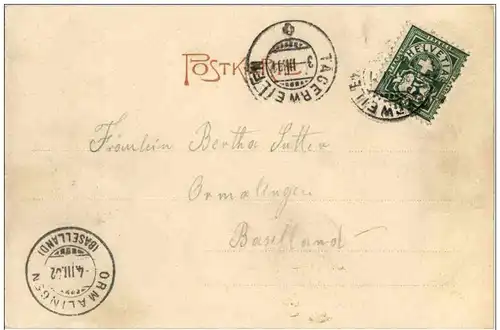 POSTKARTE.
TÄGERWEILEN
3.III.02
HELVETIA
5
Fräulein Bertha Sutter
Ormalingen
Baselland.
ORMALINGEN
(BASELLAND)
-4.III.02